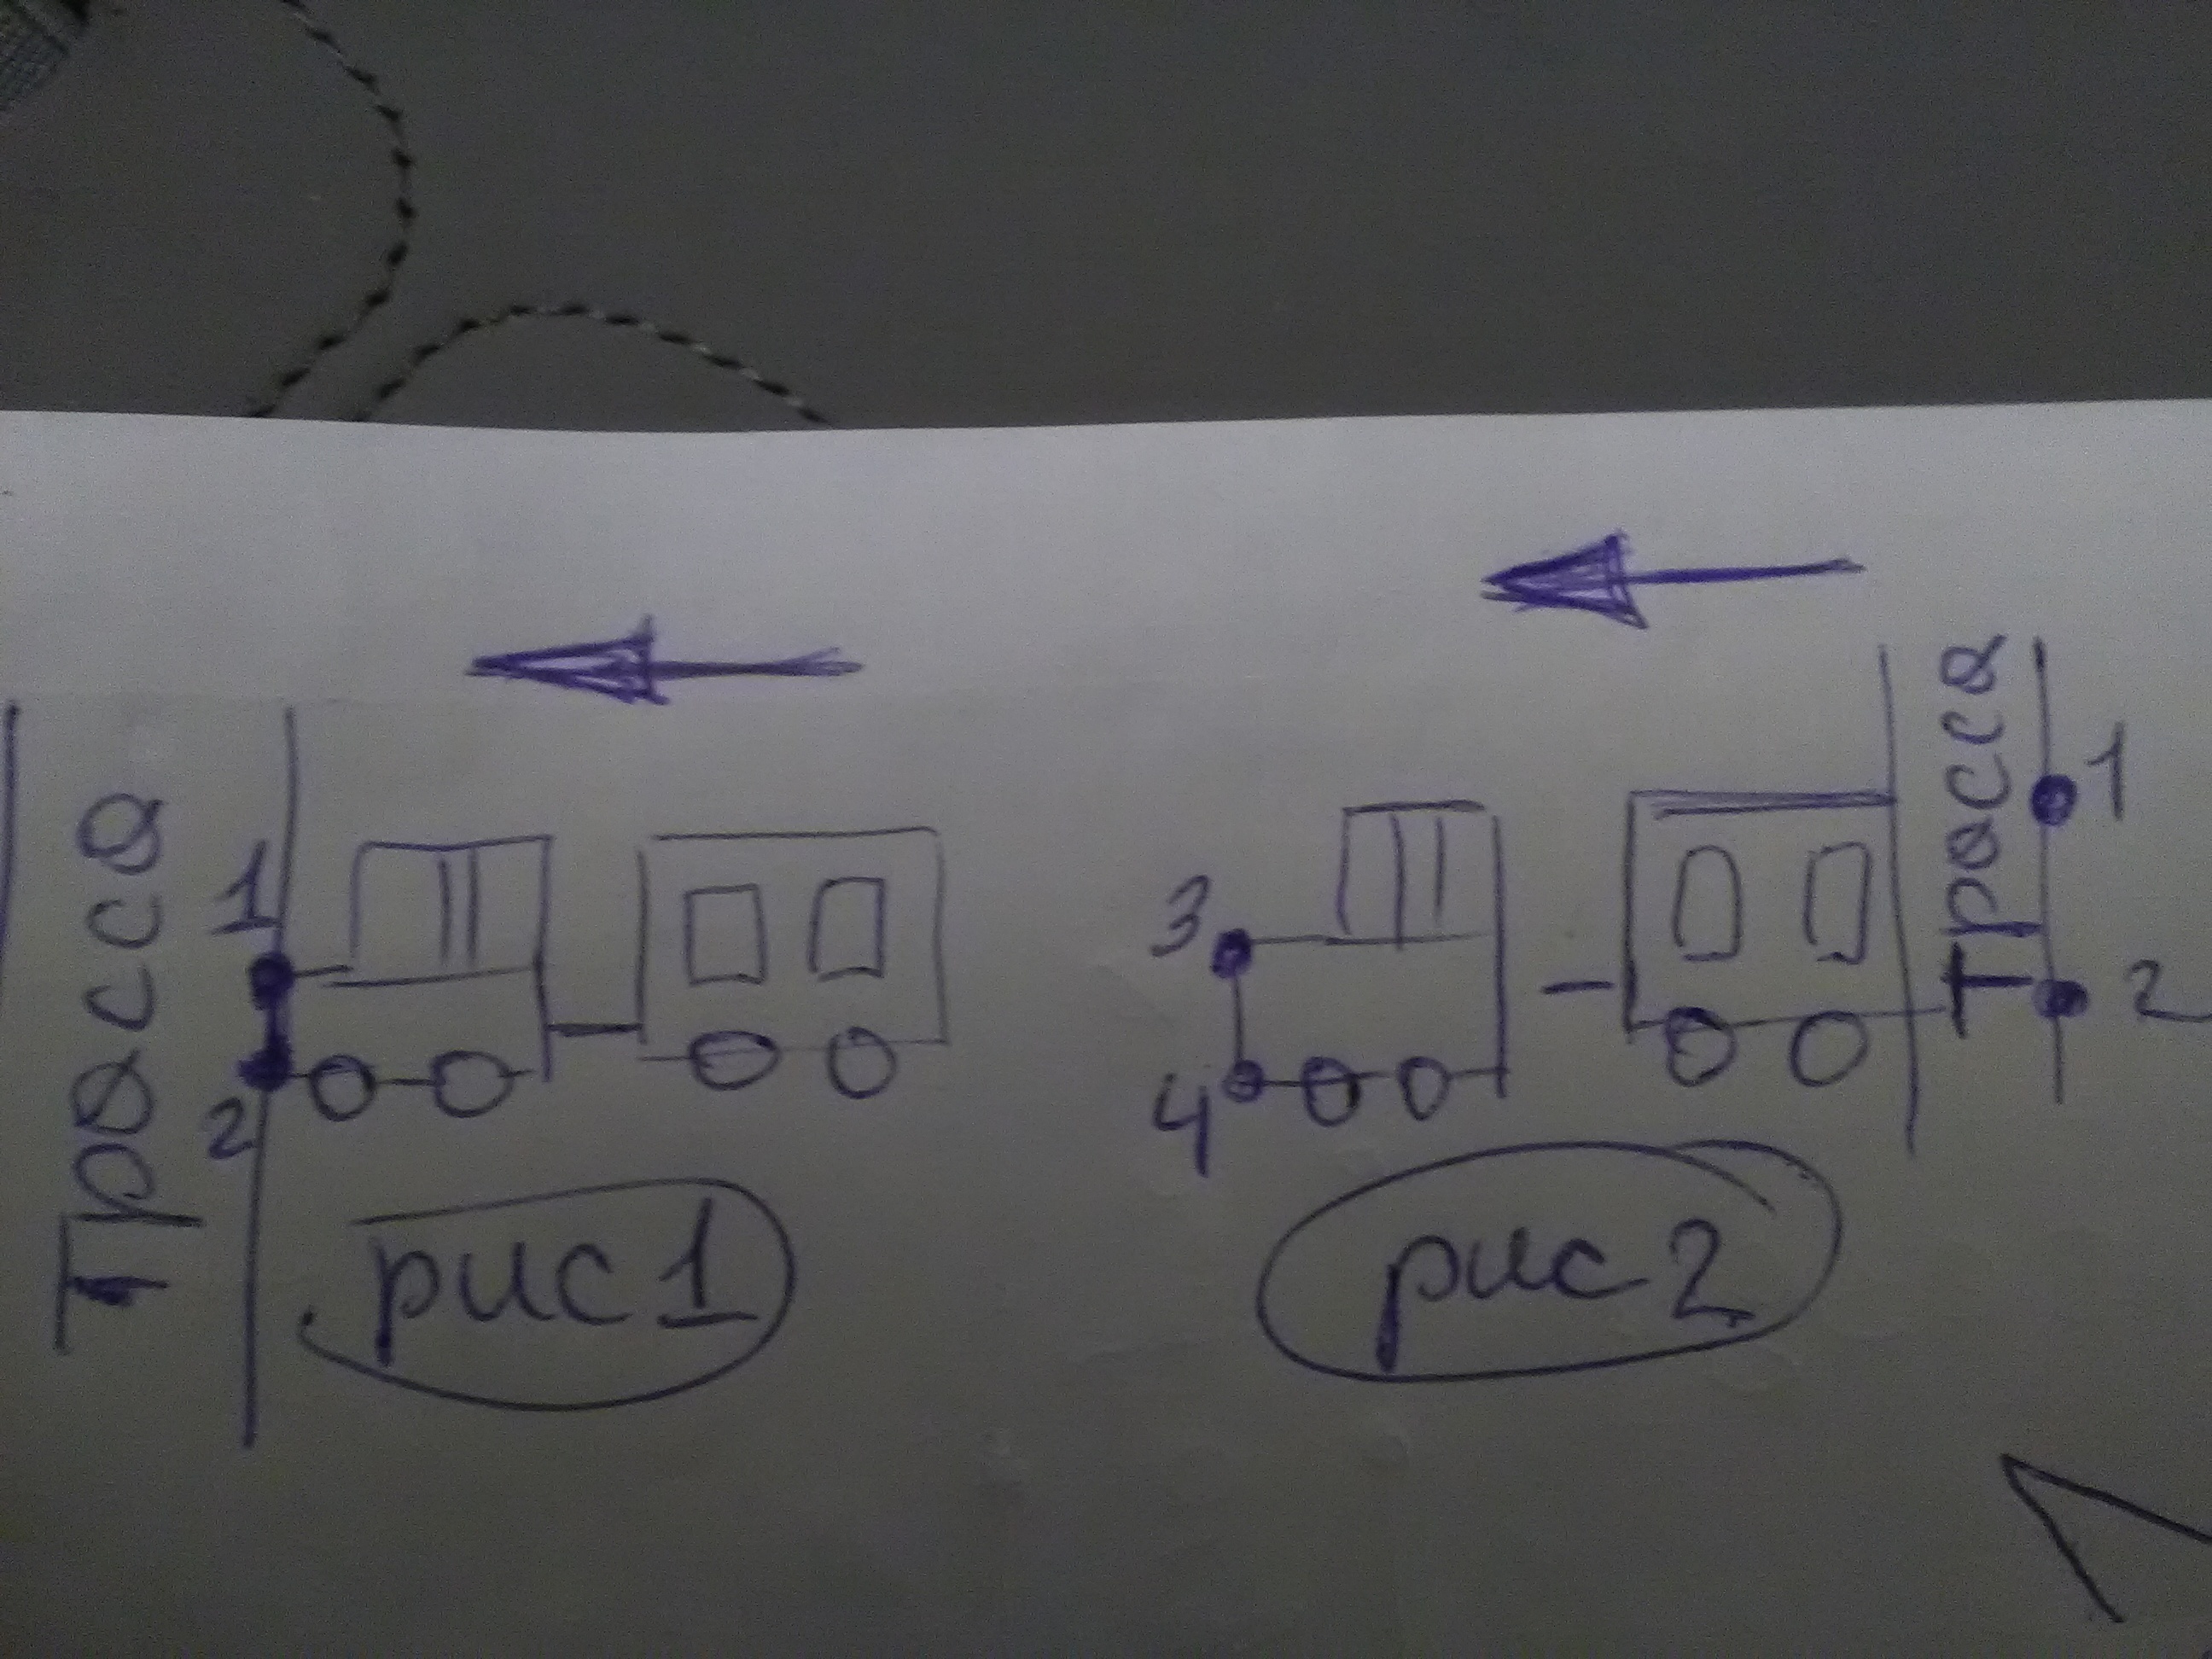 Трасса
1
2
рис 1
3
4
Трасса
1
2
рис 2